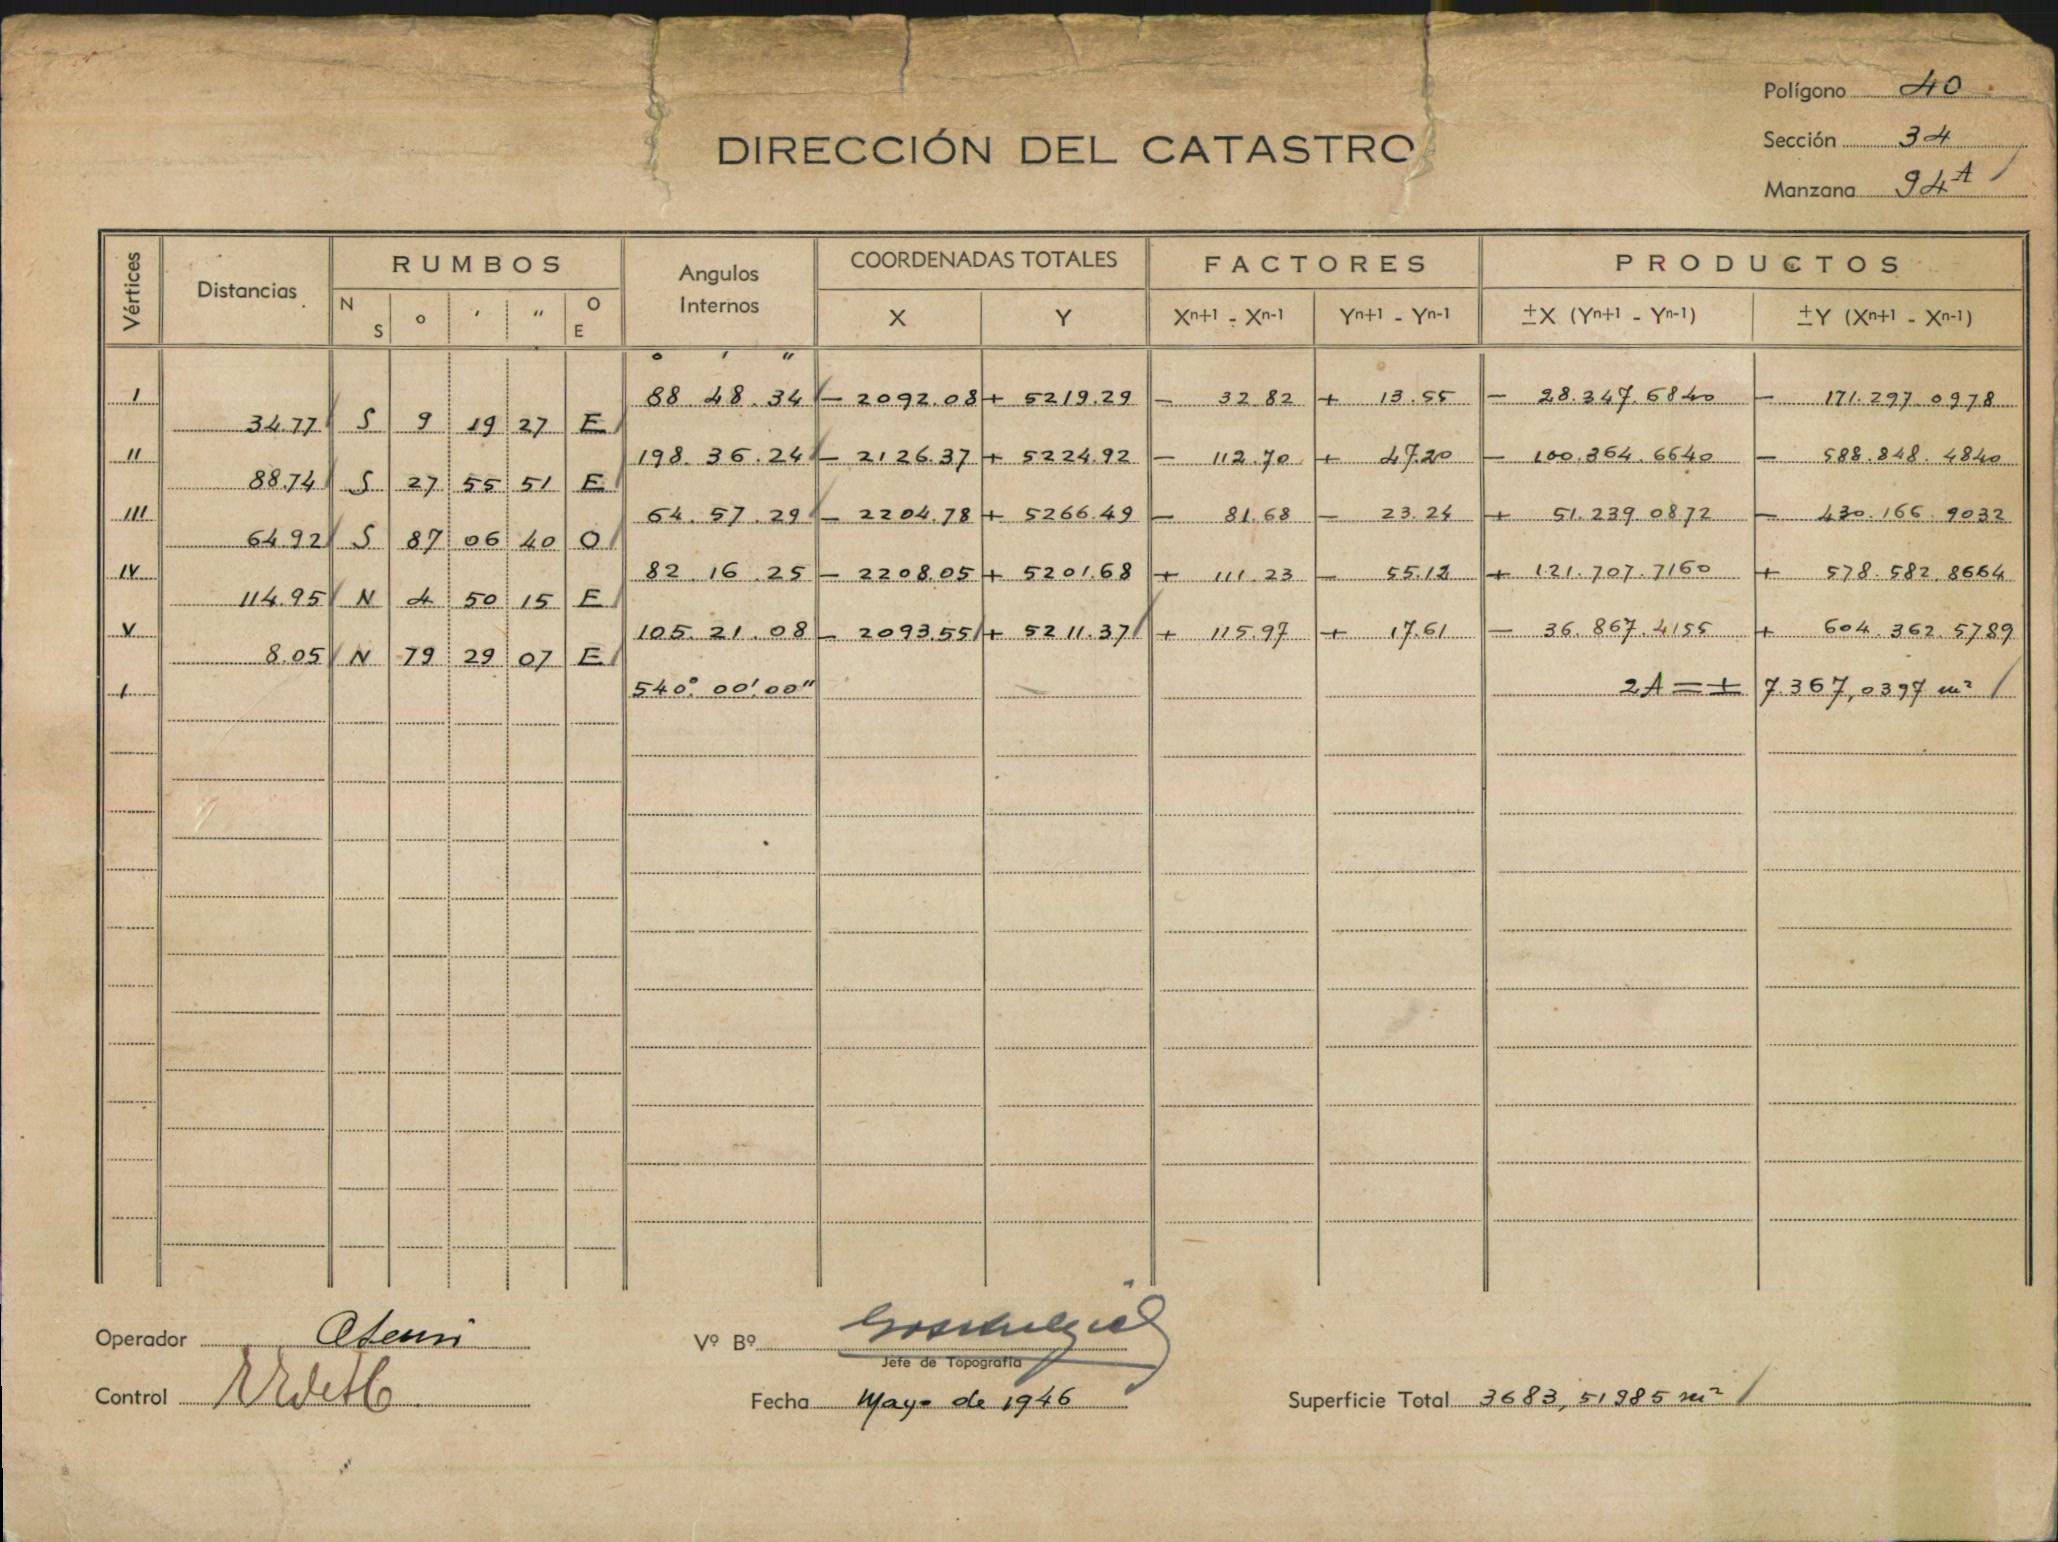 Polígono 40
Sección 34
Manzana 94 A
DIRECCIÓN DEL CATASTRO
Vértices Distancias RUMBOS Angulos Internos COORDENADAS TOTALES FACTORES PRODUCTOS
N S o ' " O E X Y Xn+1 - Xn-1 Yn+1 - Yn-1 ±X (Yn+1 - Yn-1) ±Y (Xn+1 - Xn-1)
o ' "
I 88 48.34 - 2092.08 + 5219.29 - 32.82 + 13.55 - 28.347.6840 - 171.297.0978
34.77 S 9 19 27 E
II 198.36.24 - 2126.37 + 5224.92 - 112.70 + 47.20 - 100.364.6640 - 588.848.4840
88.74 S 27 55 51 E
III 64.57.29 - 2204.78 + 5266.49 - 81.68 - 23.24 + 51.239.0872 - 430.166.9032
64.92 S 87 06 40 O
IV 82.16.25 - 2208.05 + 5201.68 + 111.23 - 55.12 + 121.707.7160 + 578.582.8664
114.95 N 4 50 15 E
V 105.21.08 - 2093.55 + 5211.37 + 115.97 + 17.61 - 36.867.4155 + 604.362.5789
8.05 N 79 29 07 E
I 540° 00' 00" 2A = + 7.367,0397 m²
Operador
Vº Bº
Jefe de Topografía
Control
Fecha Mayo de 1946
Superficie Total 3683,51985 m²